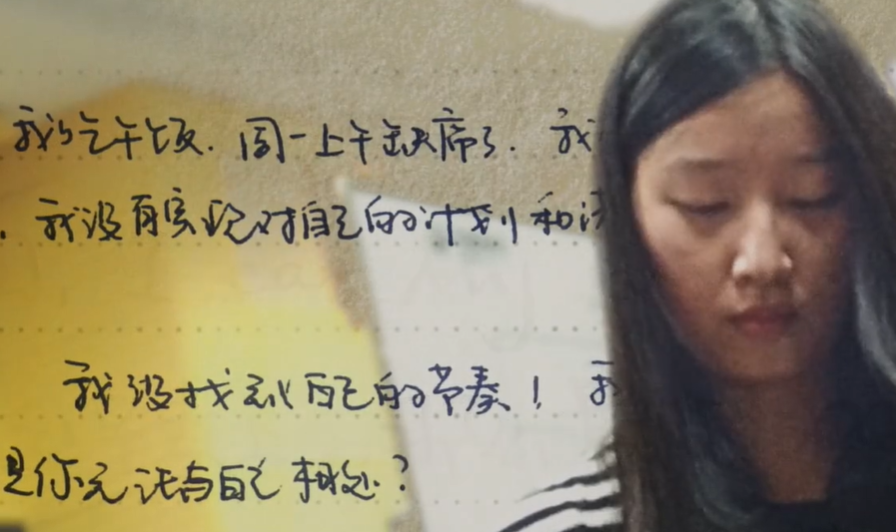 我吃午饭.周一上午缺席了.我
.我没有实现对自己的计划和
我没找到自己的节奏!我
是你无法与自己相处?